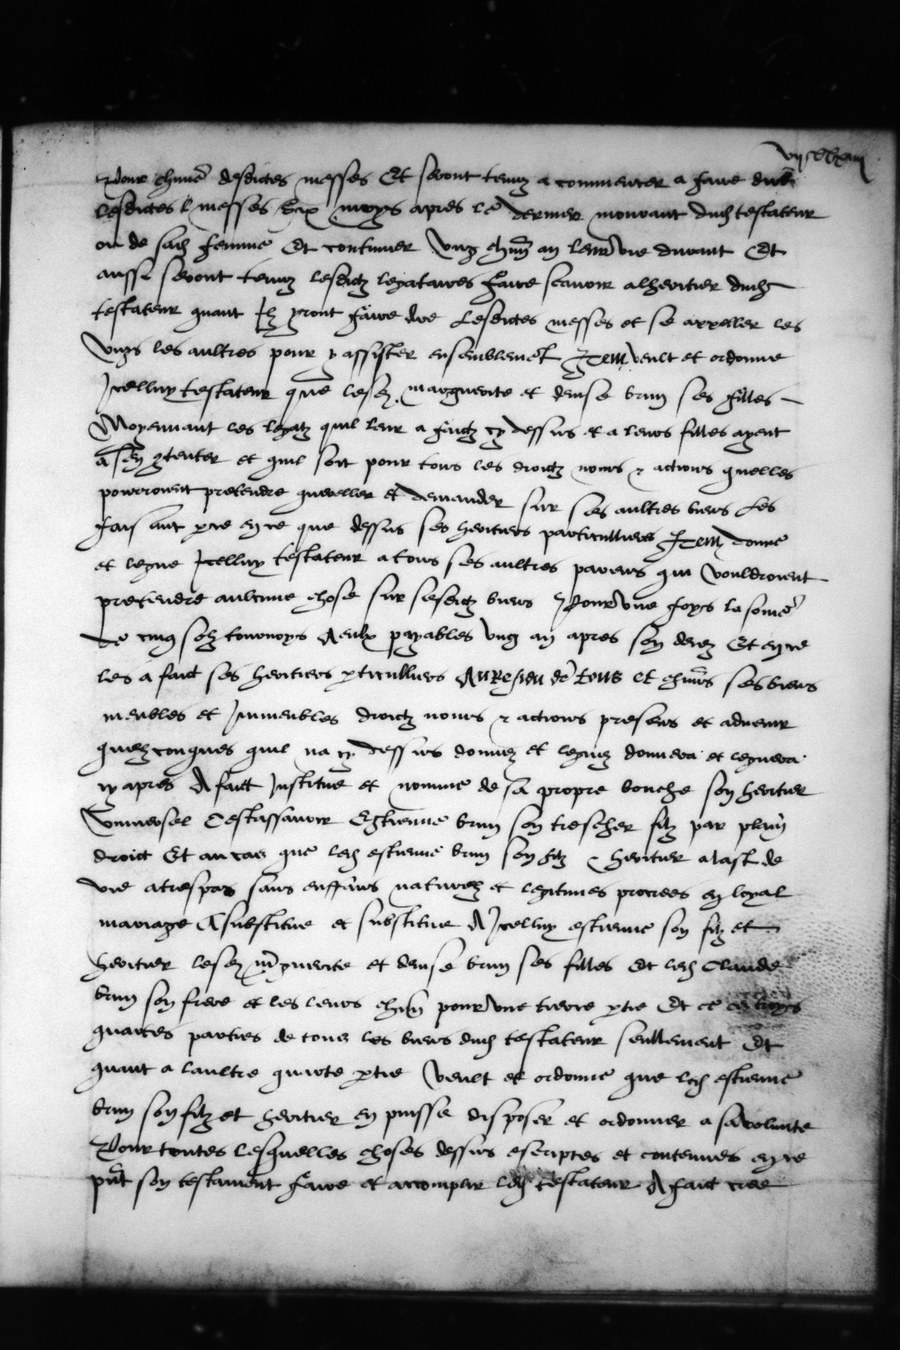 Pour chune desdictes messes Et seront tenuz a commencer a faire dire
lesdictes messes six moys apres le dernier mourant dud testateur
ou de sad femme Et continuer ung chun an leur vie durant Et
aussi seront tenuz lesdictz legataires faire scavoir alheritier dud
testateur quant Ilz feront faire dire Lesdictes messes et se appeller les
Ungs les aultres pour y assister ensemblement Item veult et ordonne
Icelluy testateur que lesd marguerite et denise brun ses filles
Moyennant les legatz quil leur a faictz cy dessus et a leurs filles ayent
a sen contenter et quil soit pour tous les droictz noms et actions quelles
pourroient pretendre quereller et demander sur ses aultres biens Les
faisant par ce en ce que dessus ses heritiers particulliers Item donne
et legue Icelluy testateur a tous ses aultres parens qui vouldroient
pretendre aulcune chose sur sesdictz biens pour une foys la some
de cinq solz tournoys A eulx payables ung an apres son decez Et en ce
les a faict ses heritiers particulliers Au Residu de tous et chuns ses biens
meubles et Immeubles droictz noms et actions presens et advenir
quelzconques quil na cy dessus donnez et leguez donnera et leguera
cy apres A faict Institue et nomme de sa propre bouche son heritier
Universel Cestassavoir Estienne brun son trescher filz par plain
droict Et au cas que led estienne brun son filz et heritier alast de
vie a trespas sans enffans naturelz et legitimes procrees en loyal
mariage A substitue et substitue A Icelluy estienne son filz et
heritier lesd marguerite et denise brun ses filles Et led Claude
brun son frere et les leurs chun pour une tierce partie Et ce es troys
quartes parties de tous les biens dud testateur seullement Et
quant a laultre quarte partie Veult et ordonne que led estienne
brun son filz et heritier en puisse disposer et ordonner a sa volunte
Pour toutes lesquelles choses dessus escriptes et contenues en ce
pnt son testament faire et accomplir led testateur A faict cree